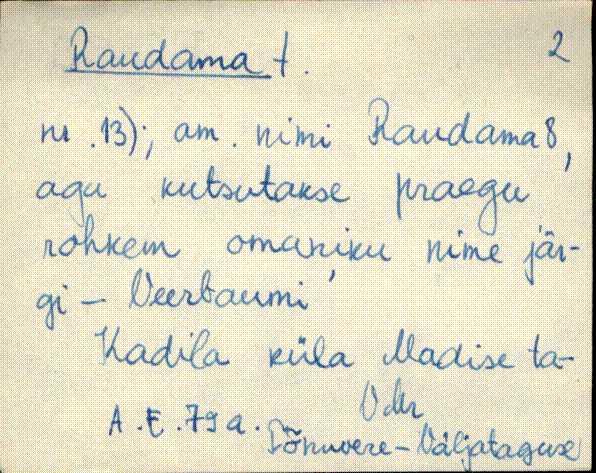 Raudama t. 2
nr. 13); am. nimi Raudama 8,
agu kutsutakse praegu
rohkem omaniku nime jär-
gi - Veerbaumi
Kadila küla Madise ta-
A.E. 79 a. VMr
Põhuvere - Väljataguse